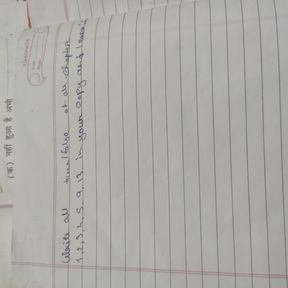 (क) नहीं हुआ है अभी
Write all true/false of all chapter
1, 2, 3, 4, 5, 9, 13 in your copy and